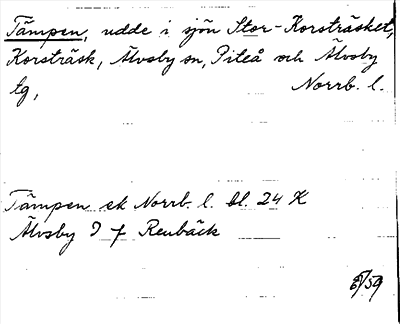 Tämpen, udde i sjön Stor-Korsträsket,
Korsträsk, Älvsby sn, Piteå och Älvsby
tg, Norrb. l.
Tämpen ek Norrb. l. bl. 24 K
Älvsby I f Renbäck
/59